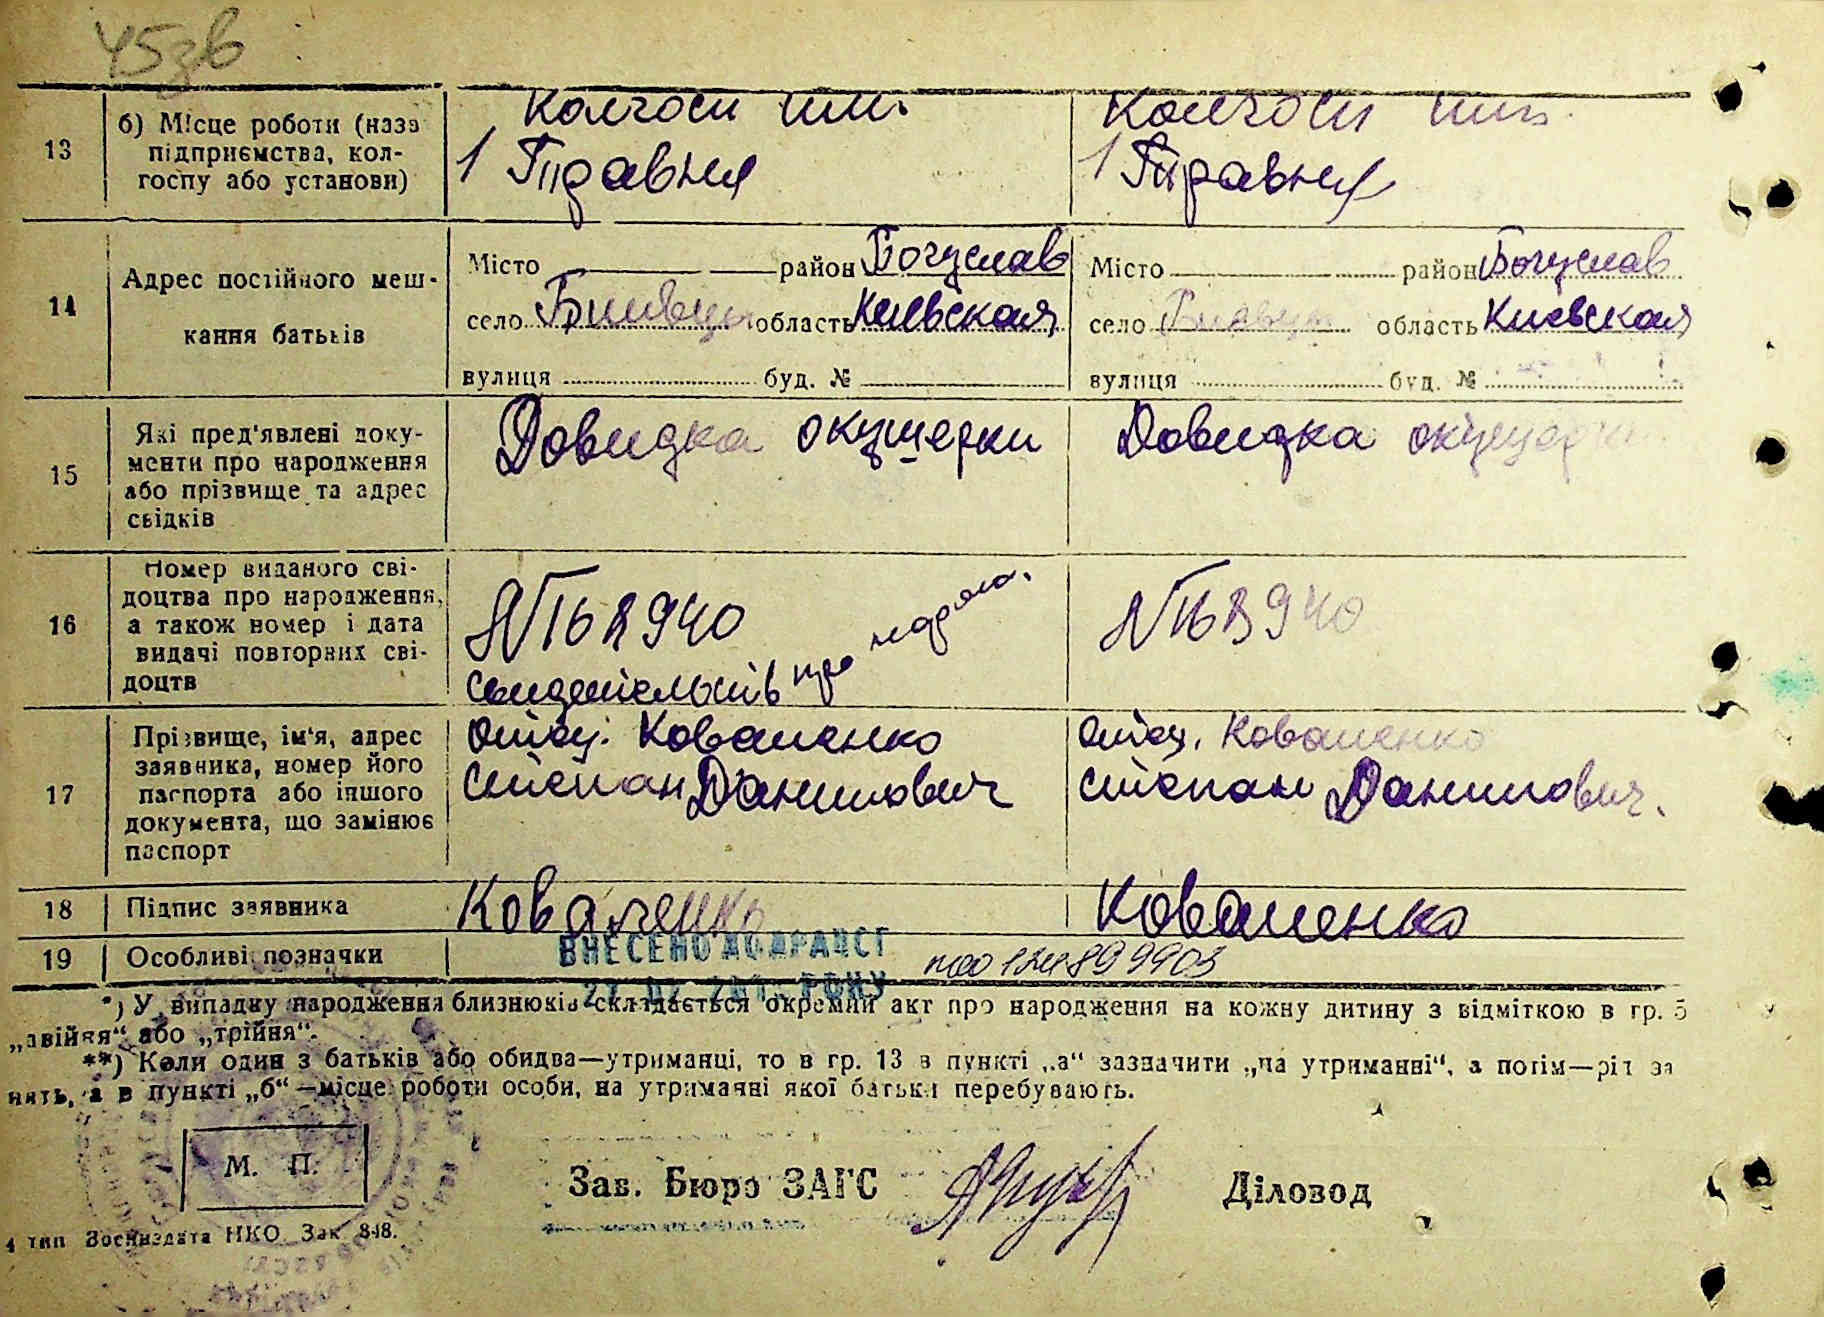 45зв
13
б) Місце роботи (назва
підприємства, кол-
госпу або установи)
Колгосп им.
1 Травня
Колгосп им.
1 Травня
14
Адрес постійного меш-
кання батьків
Місто район Богуслав
село область Киевская
вулиця буд. №
Місто район Богуслав
село область Киевская
вулиця буд. №
15
Які пред'явлені доку-
менти про народження
або прізвище та адрес
свідків
Довидка окушерки
Довидка окушерки
16
Номер виданого сві-
доцтва про народження,
а також номер і дата
видачі повторних сві-
доцтв
940
940
17
Прізвище, ім'я, адрес
заявника, номер його
паспорта або іншого
документа, що замінює
паспорт
Отец. Коваленко
Степан Данилович
Отец. Коваленко
Степан Данилович.
18
Підпис заявника
Коваленко
Коваленко
19
Особливі позначки
ВНЕСЕНО ДО ДРАЦСГ
РОКУ
*) У випадку народження близнюків складається окремий акт про народження на кожну дитину з відміткою в гр. 5
„двійня“ або „трійня“.
**) Коли один з батьків або обидва—утриманці, то в гр. 13 в пункті „а“ зазначити „на утриманні“, а потім—рід за
нять, а в пункті „б“—місце роботи особи, на утриманні якої батьки перебувають.
М. П.
Зав. Бюро ЗАГС
Діловод
4 тип Воениздата НКО Зак 848.